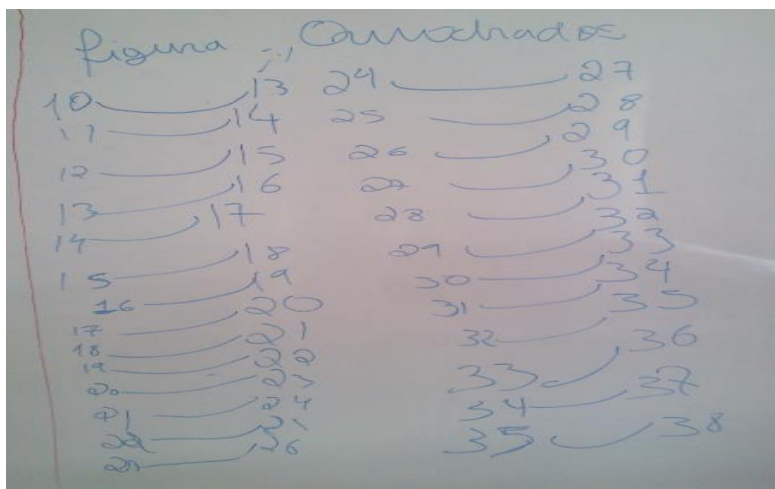 figura ;, Quadrados
10 13
11 14
12 15
13 16
14 17
15 18
16 19
17 20
18 21
19 22
20 23
21 24
22 25
23 26
24 27
25 28
26 29
27 30
28 31
29 32
30 33
31 34
32 35
33 36
34 37
35 38